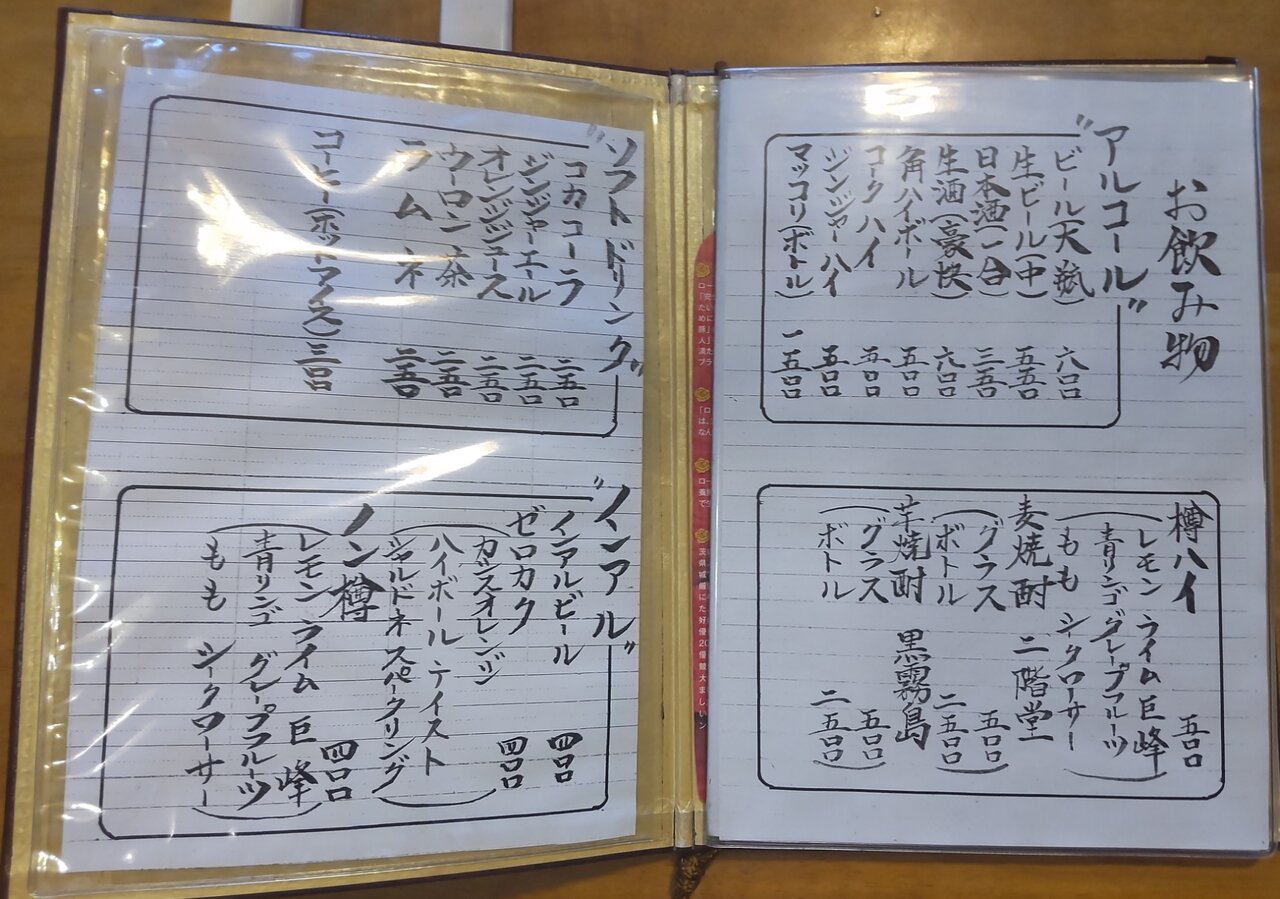 お飲み物
"アルコール"
ビール(大瓶) 六〇〇
生ビール(中) 五五〇
日本酒(一合) 三五〇
生酒(豪快) 六〇〇
角ハイボール 五〇〇
コークハイ 五〇〇
ジンジャーハイ 五〇〇
マッコリ(ボトル) 一五〇〇
樽ハイ 五〇〇
(レモン ライム 巨峰
青リンゴ グレープフルーツ
もも シークワーサー)
麦焼酎 二階堂
(グラス 五〇〇
ボトル 二五〇〇)
芋焼酎 黒霧島
(グラス 五〇〇
ボトル 二五〇〇)
"ソフトドリンク"
コカコーラ 二五〇
ジンジャーエール 二五〇
オレンジジュース 二五〇
ウーロン茶 二五〇
ラムネ 二五〇
コーヒー(ホットアイス) 三〇〇
"ノンアル"
ノンアルビール 四〇〇
ゼロカク 四〇〇
(カシスオレンジ
ハイボールテイスト
シャルドネスパークリング)
ノン樽 四〇〇
(レモン ライム 巨峰
青リンゴ グレープフルーツ
もも シークワーサー)